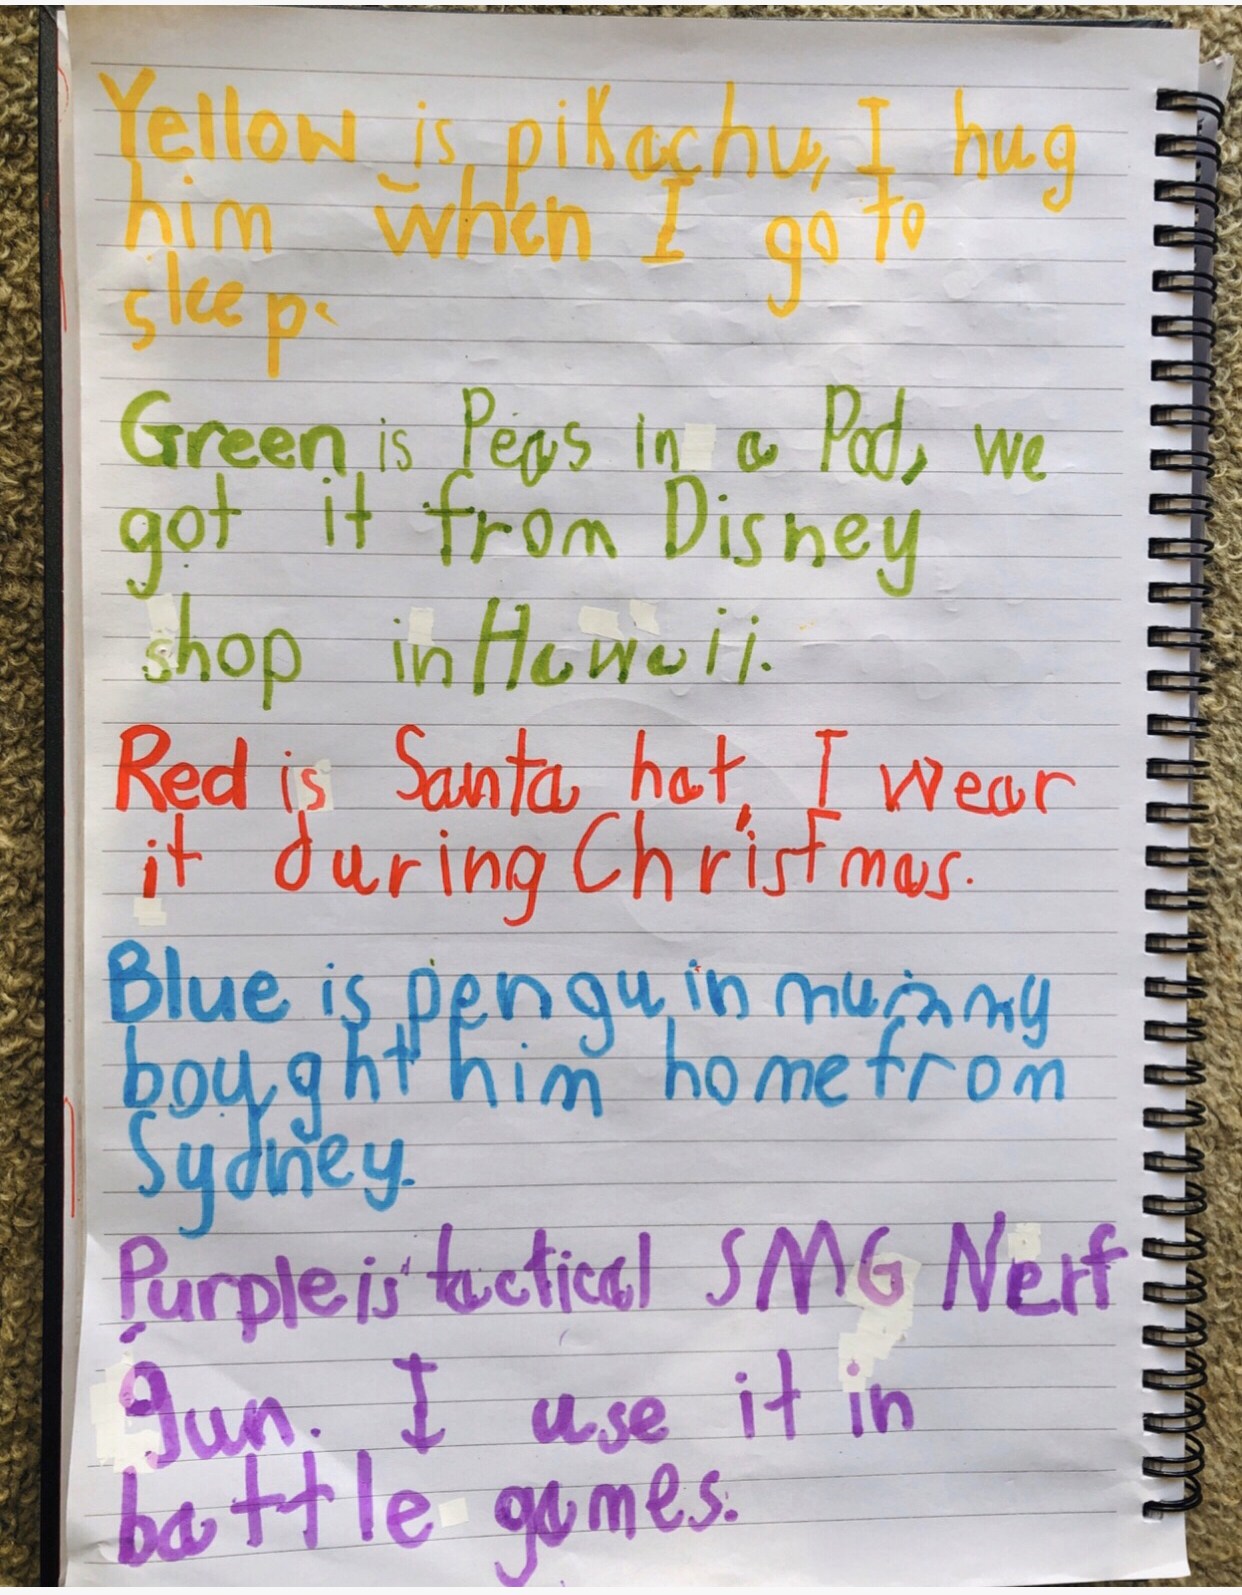 Yellow is pikachu, I hug
him when I go to
sleep.
Green is Peas in a Pod, we
got it from Disney
shop in Hawaii.
Red is Santa hat, I wear
it during Christmas.
Blue is penguin mummy
bought him home from
Sydney.
Purple is tactical SMG Nerf
gun. I use it in
battle games.